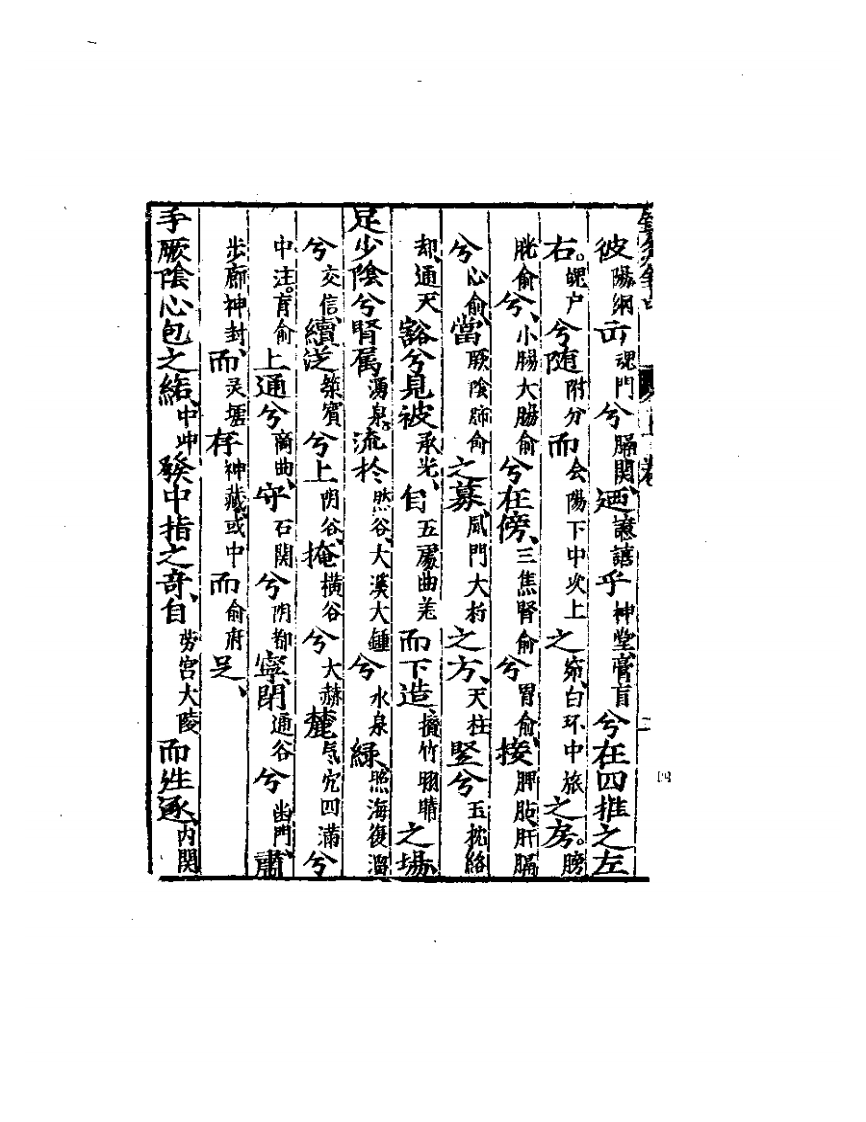 彼陽綱而魂門兮膈関、廼譩譆乎神堂、膏肓兮在四椎之左
右。魄户兮随附分而会陽下中次上之窌、白环中旅之房。膀
胱俞兮、小腸大腸俞兮在傍、三焦腎俞兮胃俞、接脾胆肝膈
兮心俞、當厥陰肺俞之募、風門大杼之方、天柱竖兮玉枕絡
却、通天豁兮見彼承光、自五處曲差而下造、攢竹睛明之場、
足少陰兮腎属湧泉。流於然谷、大溪大鍾兮水泉緑、照海復溜、
兮交信、續従築賓兮上阴谷、掩横谷兮大赫麓气穴四满兮
中注。肓俞上通兮商曲、守石関兮阴都寧、閉通谷兮幽門、肅
步廊神封、而灵墟存神藏、或中而俞府足、
手厥陰心包之絡、中冲、發中指之奇、自劳宫大陵而徃逐、内関
二
四